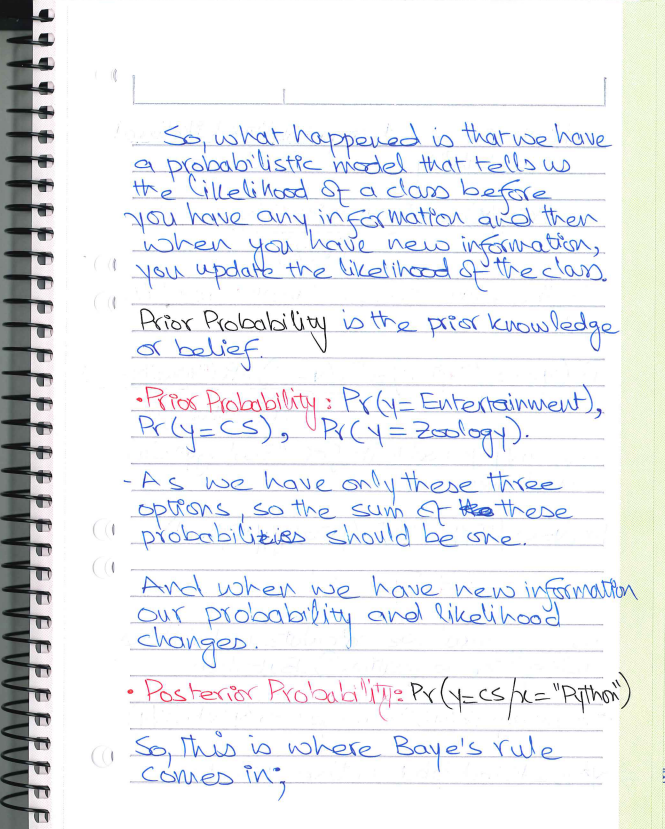 So, what happened is that we have
a probabilistic model that tells us
the likelihood of a class before
you have any information and then
when you have new information,
you update the likelihood of the class.
Prior Probability is the prior knowledge
or belief.
•Prior Probability: Pr(y=Entertainment),
Pr(y=CS), Pr(y=Zoology).
-As we have only these three
options, so the sum of these
probabilities should be one.
And when we have new information
our probability and likelihood
changes.
• Posterior Probability: Pr(y=cs/x="Python")
So, this is where Baye's rule
comes in;